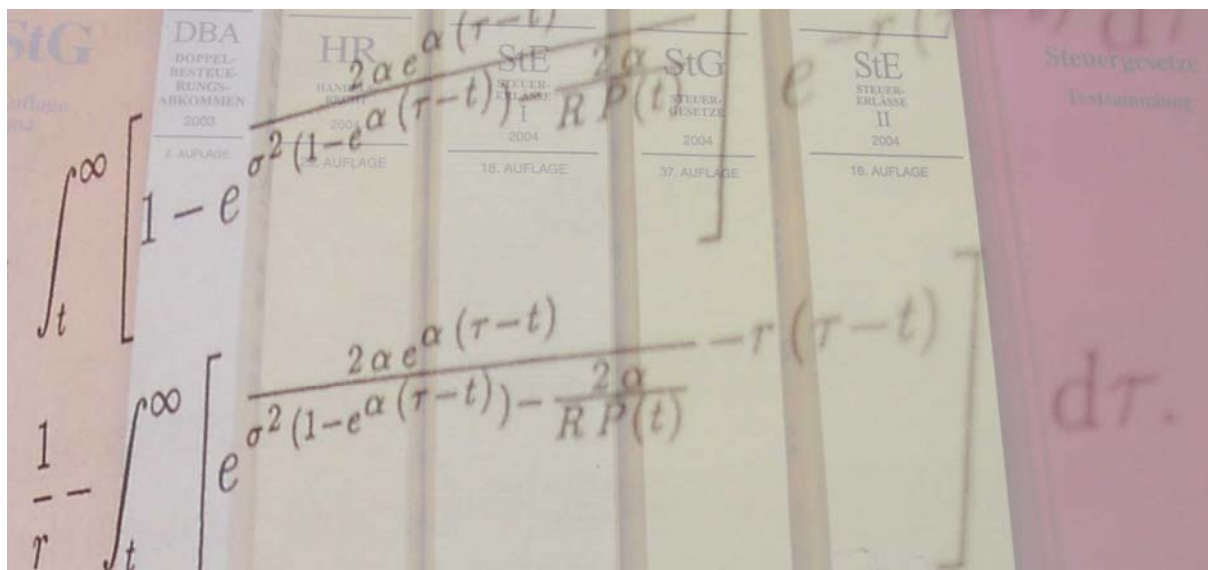 StG
DBA
DOPPEL-
BESTEUE-
RUNGS-
ABKOMMEN
2003
2. AUFLAGE
HR
2004
AUFLAGE
StE
STEUER-
ERLASSE
I
2004
18. AUFLAGE
StG
STEUER-
GESETZE
2004
37. AUFLAGE
StE
STEUER-
ERLASSE
II
2004
18. AUFLAGE
Steuergesetze
Textsammlung
∫_t^∞ [1 − e^{\frac{2 α e^{α (τ−t)}}{σ^2 (1−e^{α (τ−t)}) − \frac{2 α}{R P(t)}}}] e^{−r (τ−t)} dτ
\frac{1}{r} − ∫_t^∞ [e^{\frac{2 α e^{α (τ−t)}}{σ^2 (1−e^{α (τ−t)}) − \frac{2 α}{R P(t)}} − r (τ−t)}] dτ.